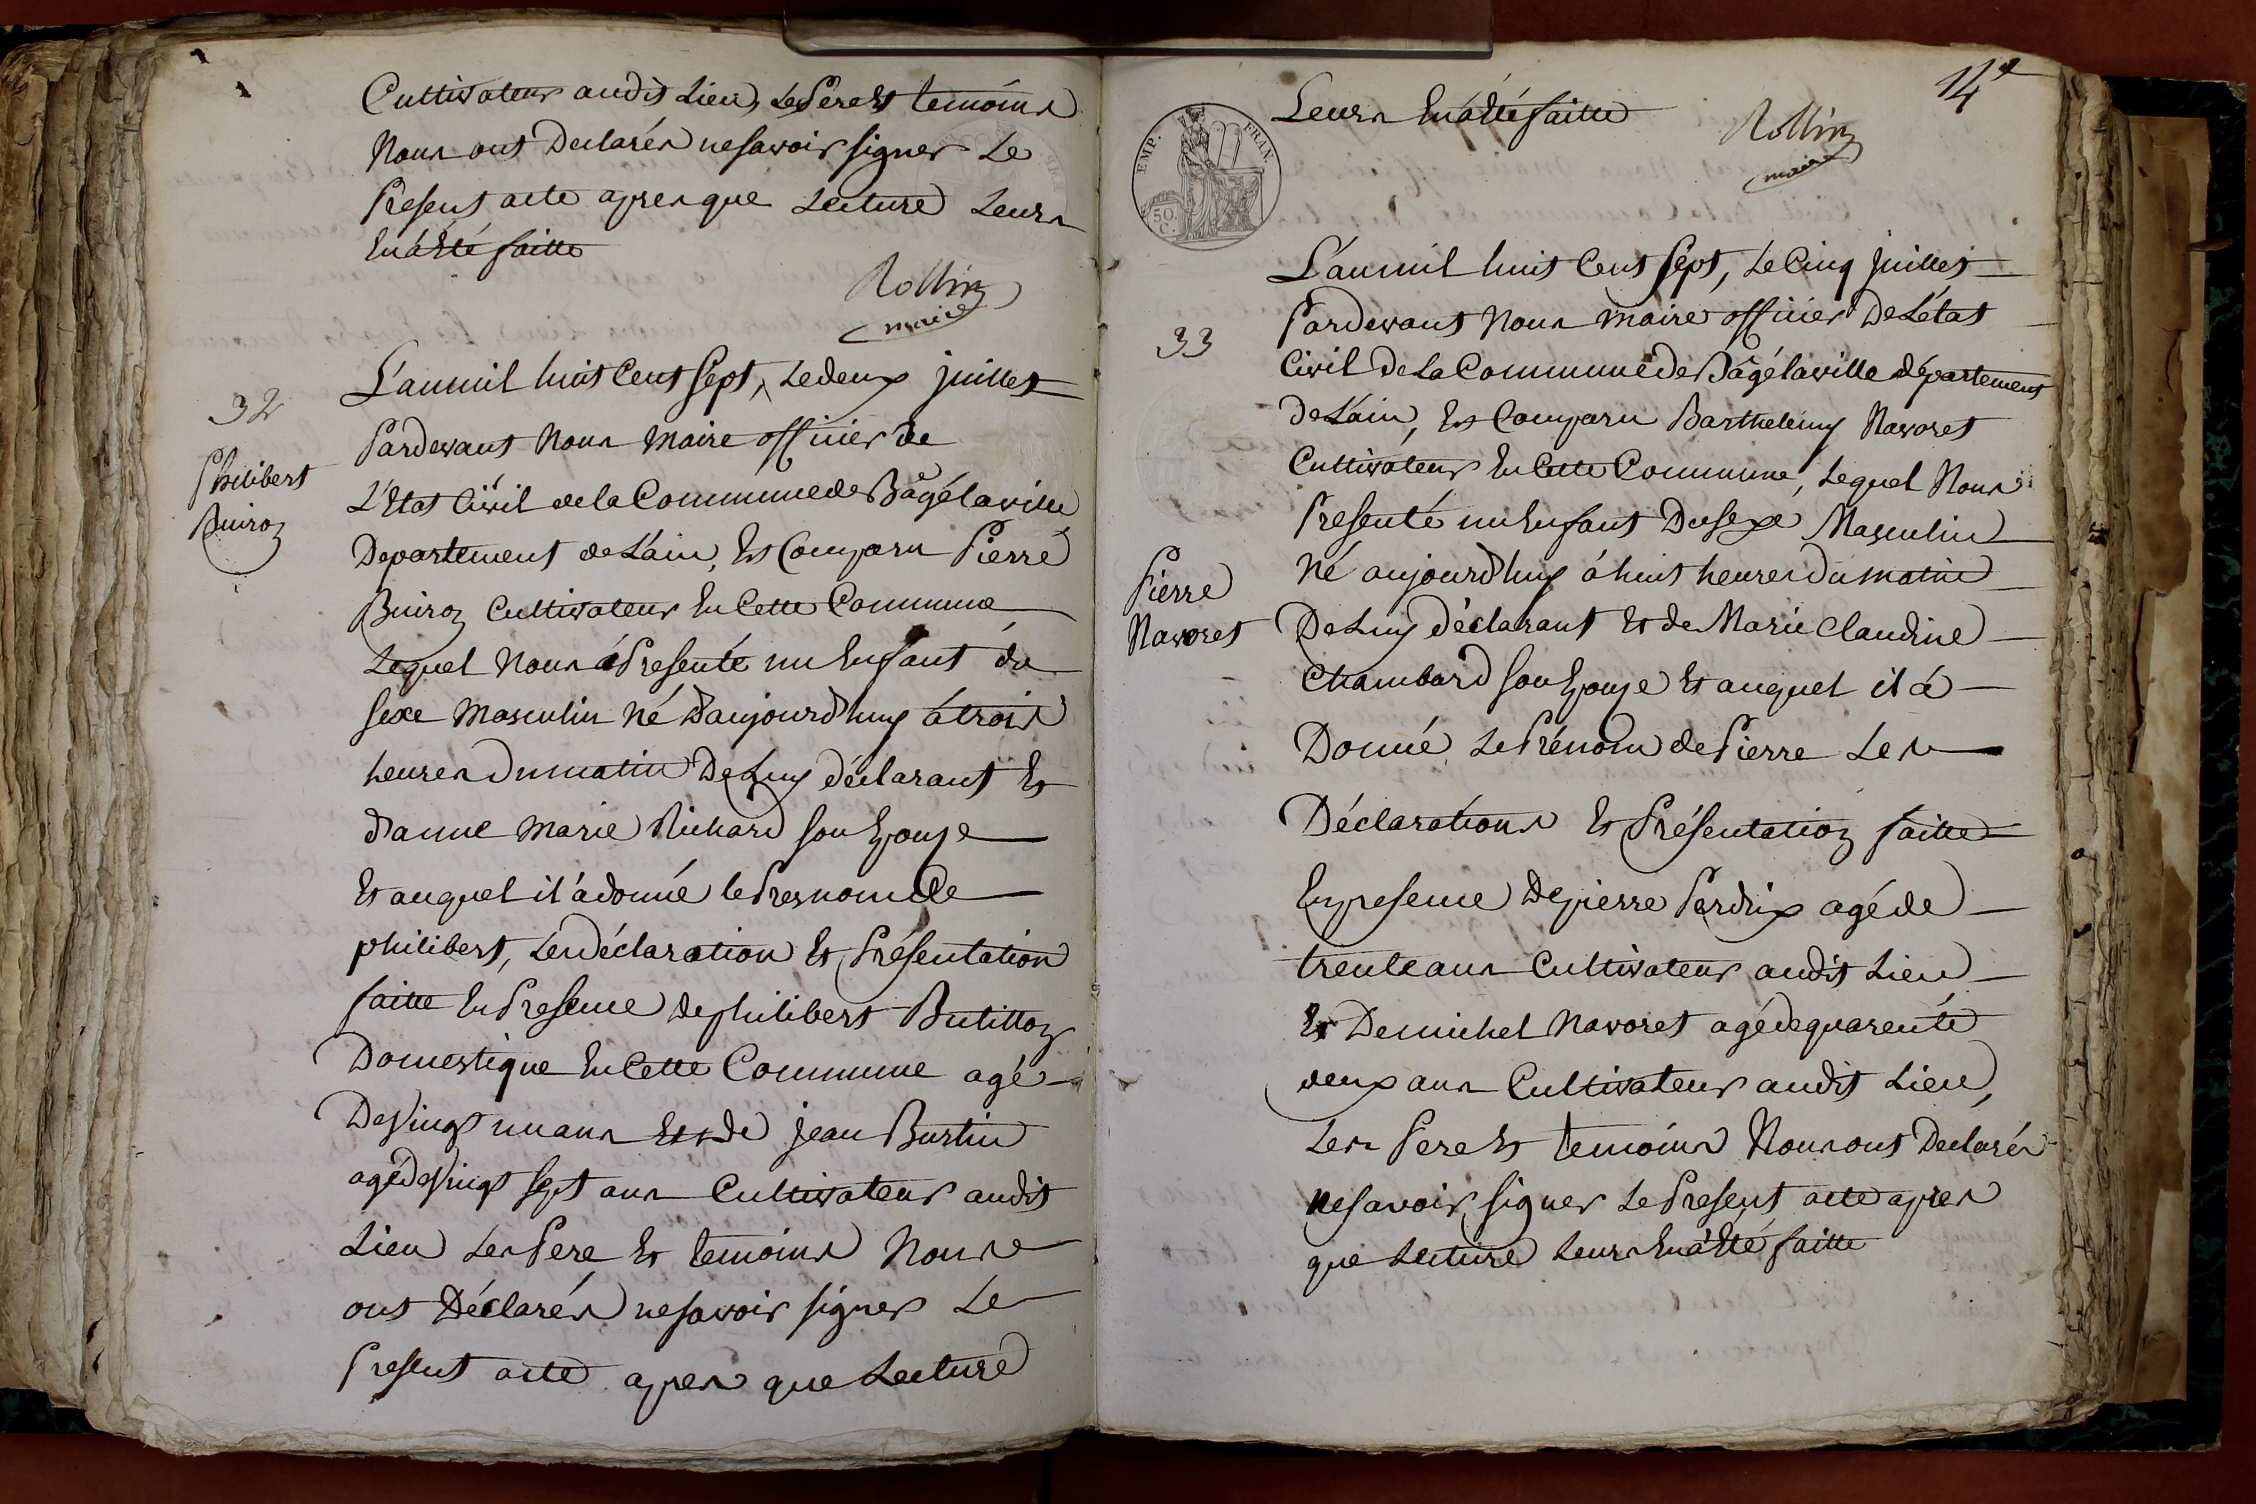 Cultivateur audit Lieu, Les Pere Et temoins
Nous ont Declarés ne savoir signer Le
Present acte apres que Lecture Leurs
En á Eté faitte
Rollin
maire
32
Philibert
Buiron
L'an mil huit Cent sept, Le deux juillet
Pardevant Nous Maire officier de
L'Etat Civil de la Commune de Bâgé laville
Departement de L'ain, Est Comparu Pierre
Buiron Cultivateur En Cette Commune
Lequel Nous á Presenté un Enfant du
sexe Masculin Né D'aujourd'huy á trois
heures du matin De Luy déclarant Et
d'anne Marie Richard son Epouse
Et auquel il á donné le Presnom de
philibert, Les déclaration Et Présentation
faitte En Presence de philibert Butillon
Domestique En Cette Commune agé
De Vingt un ans Et de jean Burtin
agé de Vingt sept ans Cultivateur audit
Lieu Les Pere Et temoins Nous
ont Déclarés ne savoir signer Le
Present acte apres que Lecture
14e
Leurs En á Eté faitte
Rollin
maire
EMP. FRAN.
50 C.
33
Pierre
Navoret
L'an mil huit Cent sept, Le Cinq juillet
Pardevant Nous Maire officier De L'état
Civil De La Commune de Bâgé laville département
De L'ain, Est Comparu Barthelemy Navoret
Cultivateur En Cette Commune, Lequel Nous
Presenté un Enfant Du sexe Masculin
Né aujourd'huy á huit heures du matin
De Luy déclarant Et de Marie Claudine
Chambard son Epouse Et auquel il á
Donné Le Prénom de Pierre Les
Déclarations Et Présentation faitte
En presence De pierre Perdrix agé de
trente ans Cultivateur audit Lieu
Et De michel Navoret agé de quarente
deux ans Cultivateur audit Lieu,
Les Pere Et temoins Nous ont Declarés
ne savoir signer Le Present acte apres
que Lecture Leurs En á Eté faitte